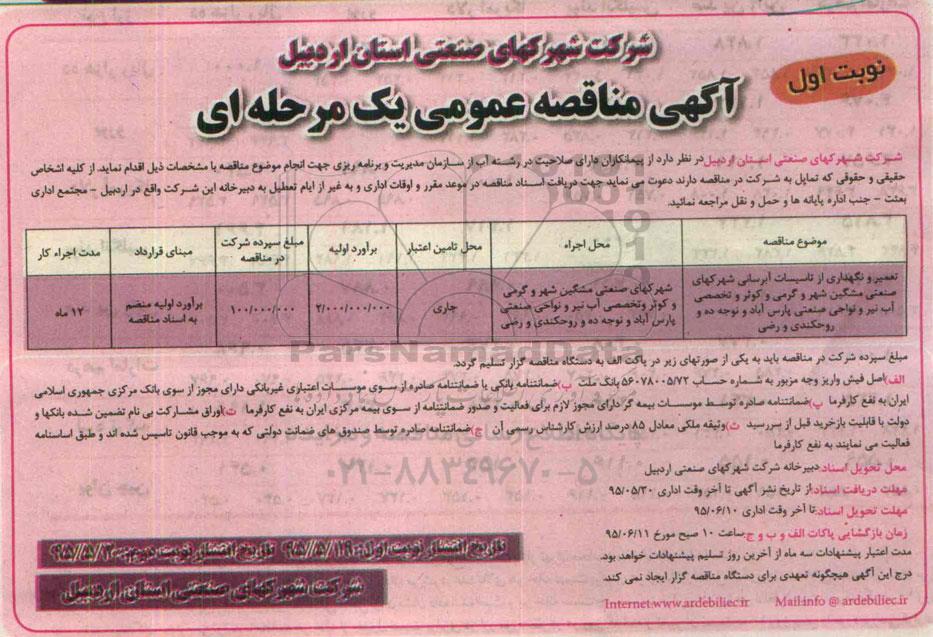 شرکت شهرکهای صنعتی استان اردبیل
نوبت اول
آگهی مناقصه عمومی یک مرحله ای
شرکت شهرکهای صنعتی استان اردبیل در نظر دارد از پیمانکاران دارای صلاحیت در رشته آب از سازمان مدیریت و برنامه ریزی جهت انجام موضوع مناقصه با مشخصات ذیل اقدام نماید. از کلیه اشخاص
حقیقی و حقوقی که تمایل به شرکت در مناقصه دارند دعوت می نماید جهت دریافت اسناد مناقصه در موعد مقرر و اوقات اداری و به غیر از ایام تعطیل به دبیرخانه این شرکت واقع در اردبیل - مجتمع اداری
بعثت - جنب اداره پایانه ها و حمل و نقل مراجعه نمائید.
موضوع مناقصه محل اجراء محل تامین اعتبار برآورد اولیه مبلغ سپرده شرکت در مناقصه مبنای قرارداد مدت اجراء کار
تعمیر و نگهداری از تاسیسات آبرسانی شهرکهای
صنعتی مشگین شهر و گرمی و کوثر و تخصصی
آب نیر و نواحی صنعتی پارس آباد و نوجه ده و
روحکندی و رضی
شهرکهای صنعتی مشگین شهر و گرمی
و کوثر وتخصصی آب نیر و نواحی صنعتی
پارس آباد و نوجه ده و روحکندی و رضی
جاری
۲/۰۰۰/۰۰۰/۰۰۰
۱۰۰/۰۰۰/۰۰۰
برآورد اولیه منضم
به اسناد مناقصه
۱۲ ماه
مبلغ سپرده شرکت در مناقصه باید به یکی از صورتهای زیر در پاکت الف به دستگاه مناقصه گزار تسلیم گردد.
الف)اصل فیش واریز وجه مزبور به شماره حساب ۵۶۰۷۸۰۰۵/۷۲ بانک ملت ب)ضمانتنامه بانکی یا ضمانتنامه صادره از سوی موسسات اعتباری غیربانکی دارای مجوز از سوی بانک مرکزی جمهوری اسلامی
ایران به نفع کارفرما پ)ضمانتنامه صادره توسط موسسات بیمه گر دارای مجوز لازم برای فعالیت و صدور ضمانتنامه از سوی بیمه مرکزی ایران به نفع کارفرما ت)اوراق مشارکت بی نام تضمین شده بانکها و
دولت با قابلیت بازخرید قبل از سررسید ث)وثیقه ملکی معادل ۸۵ درصد ارزش کارشناس رسمی آن ج)ضمانتنامه صادره توسط صندوق های ضمانت دولتی که به موجب قانون تاسیس شده اند و طبق اساسنامه
فعالیت می نمایند به نفع کارفرما
محل تحویل اسناد:دبیرخانه شرکت شهرکهای صنعتی اردبیل
مهلت دریافت اسناد:از تاریخ نشر آگهی تا آخر وقت اداری ۹۵/۰۵/۳۰
مهلت تحویل اسناد:تا آخر وقت اداری ۹۵/۰۶/۱۰
زمان بازگشایی پاکات الف و ب و ج:ساعت ۱۰ صبح مورخ ۹۵/۰۶/۱۱
مدت اعتبار پیشنهادات سه ماه از آخرین روز تسلیم پیشنهادات خواهد بود.
درج این آگهی هیچگونه تعهدی برای دستگاه مناقصه گزار ایجاد نمی کند.
Internet:www.ardebiliec.ir Mail:info @ ardebiliec.ir
تاریخ انتشار نوبت اول: ۹۵/۵/۱۹ تاریخ انتشار نوبت دوم: ۹۵/۵/۲۰
شرکت شهرکهای صنعتی استان اردبیل
ParsNamadData
۰۲۱-۸۸۳۴۹۶۷۰-۵